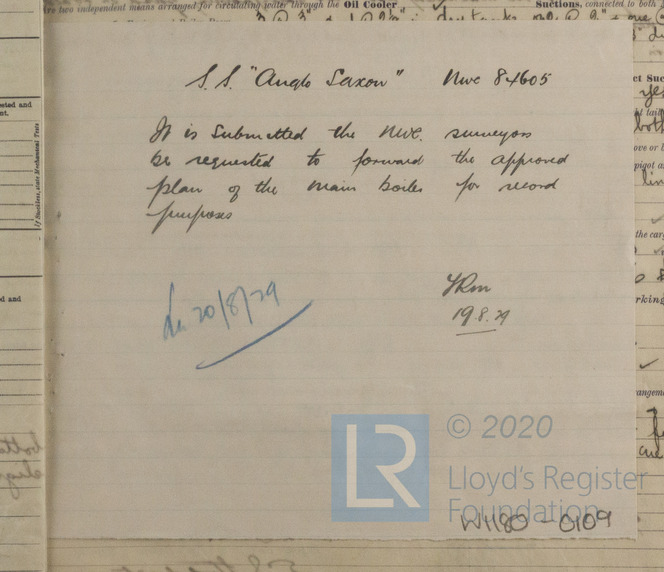 are two independent means arranged for circulating water through the Oil Cooler
Suctions, connected to both
S.S. "Anglo Saxon" Nwc 84605
It is submitted the Nwc. surveyors
be requested to forward the approved
plan of the main boiler for record
purposes
20/8/29
19.8.29
LR
© 2020
Lloyd's Register
Foundation
W1180-0109